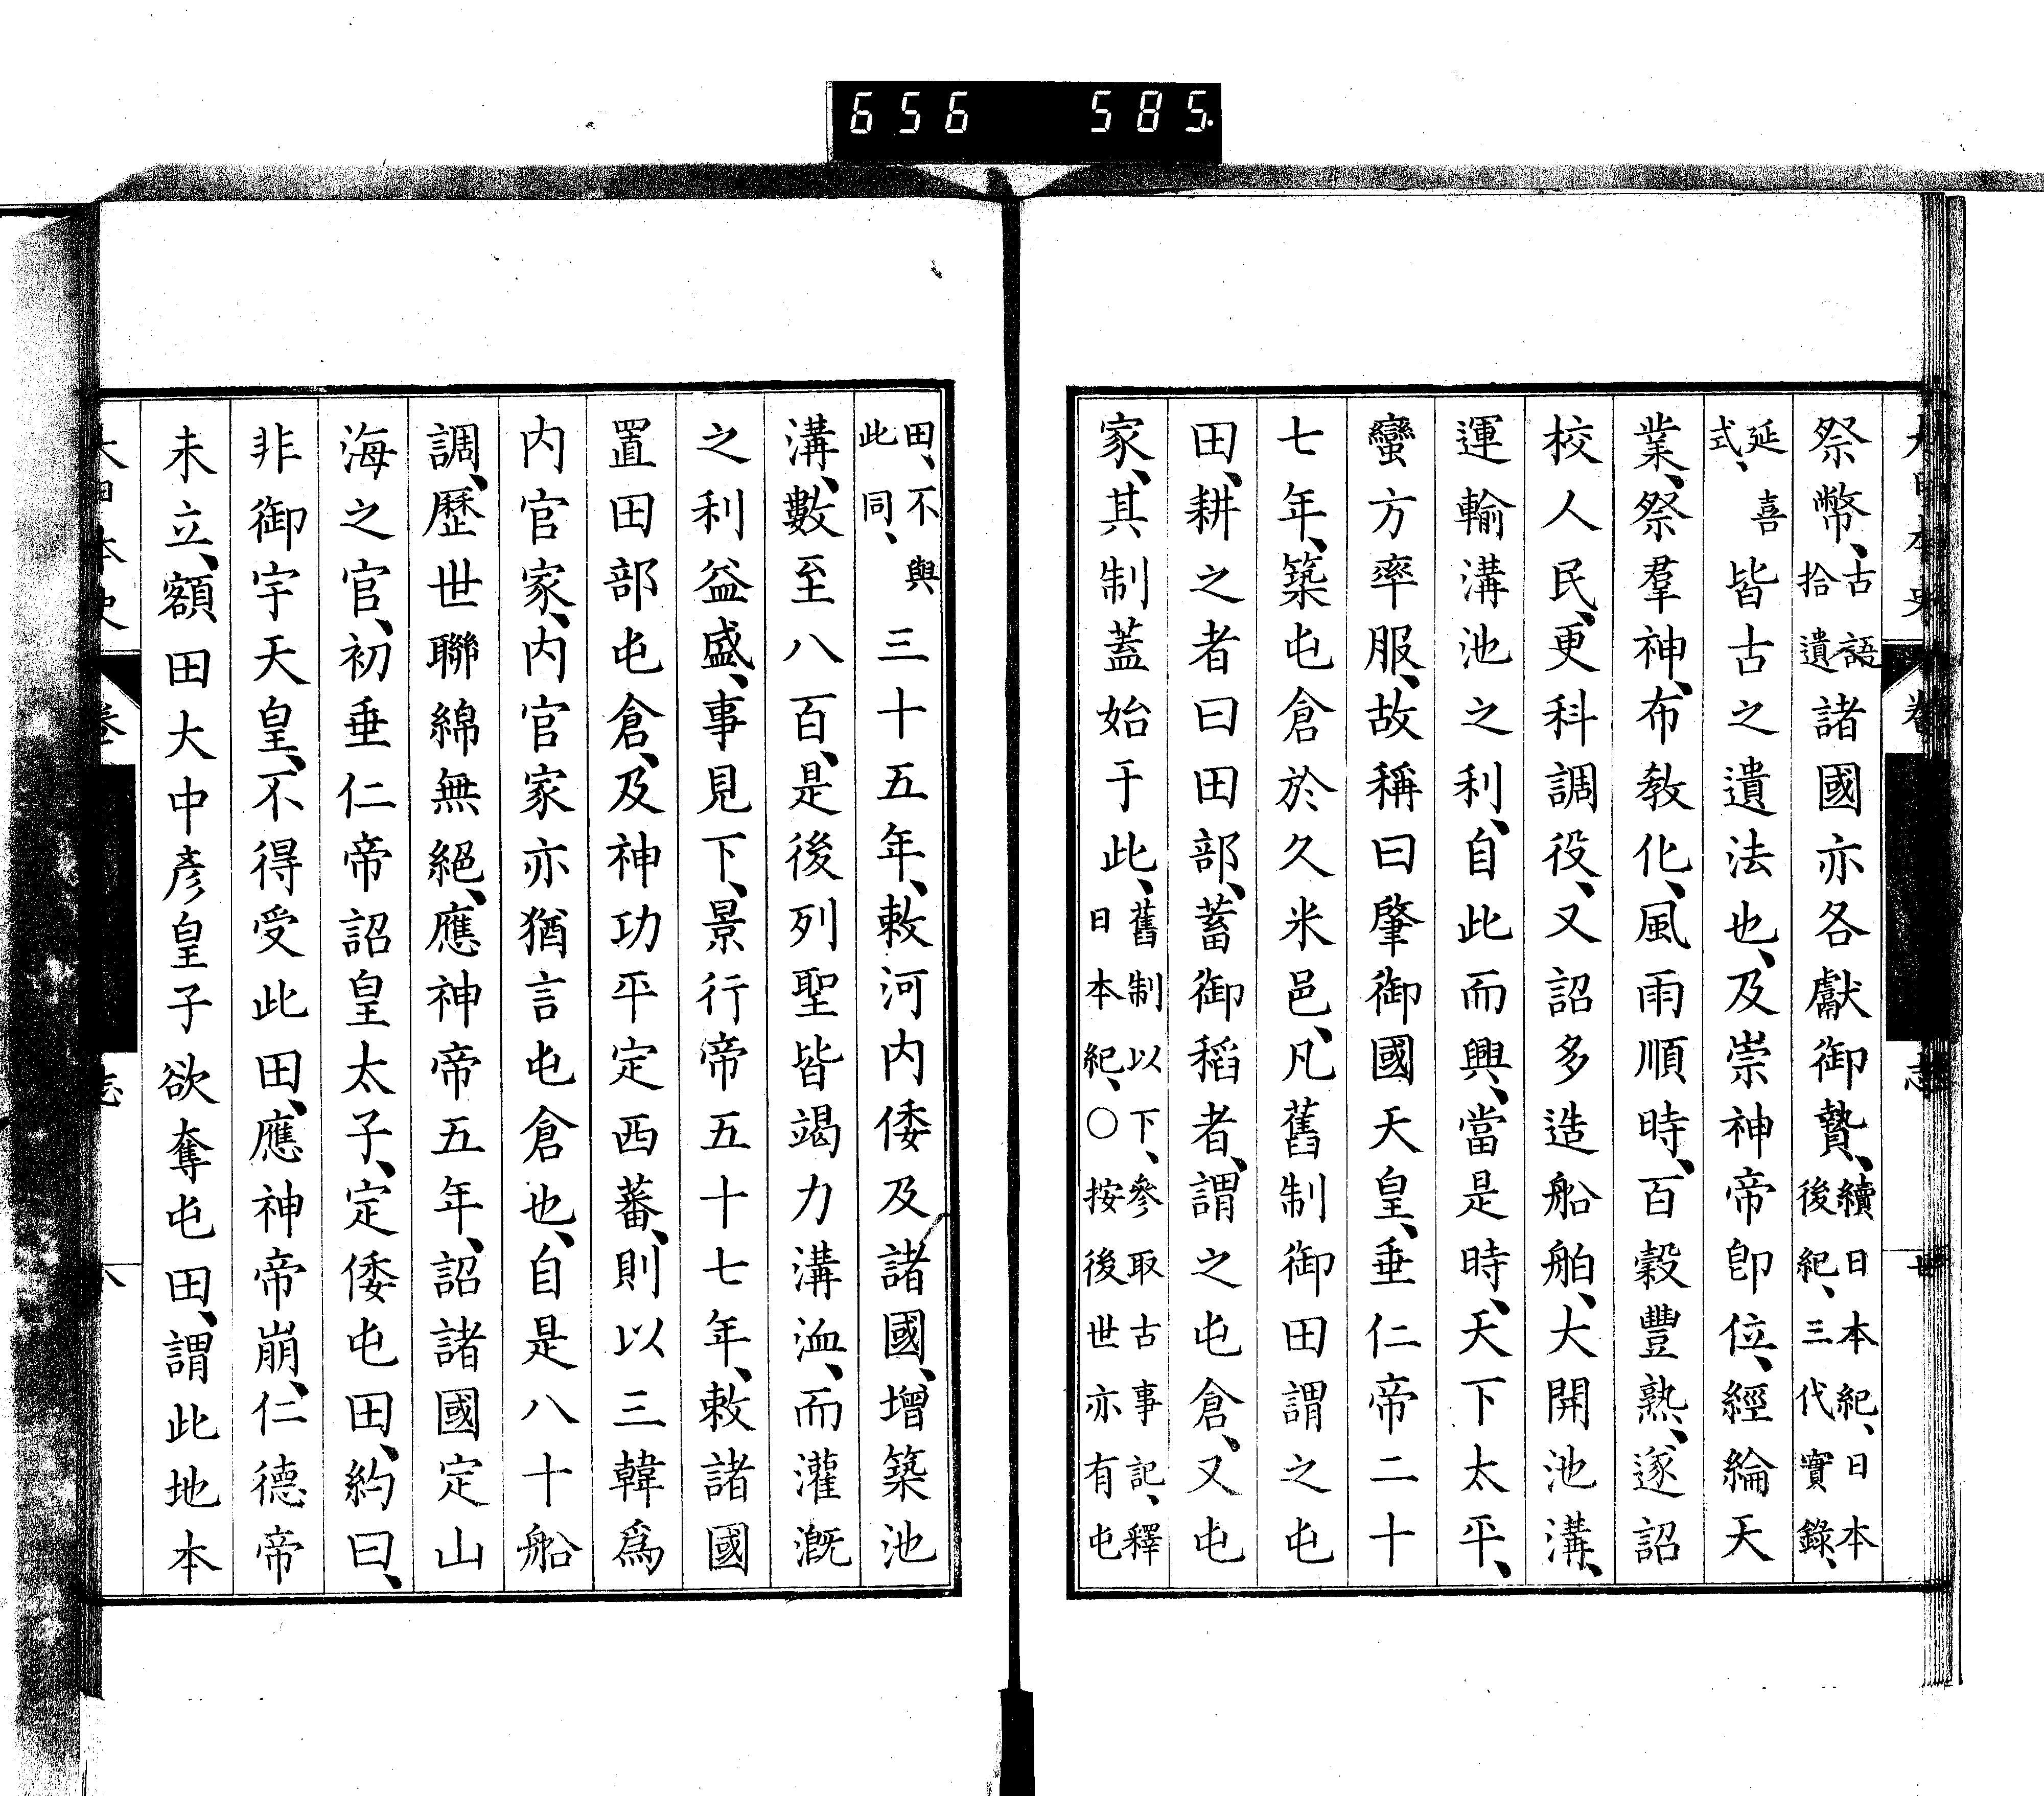 656 585.
祭幣、古語拾遺諸國亦各獻御贄、續日本紀、日本後紀、三代實錄、
延喜式、皆古之遺法也、及崇神帝卽位、經綸天
業、祭羣神、布敎化、風雨順時、百穀豐熟、遂詔
校人民、更科調役、又詔多造船舶、大開池溝、
運輸溝池之利、自此而興、當是時、天下太平、
蠻方率服、故稱曰肇御國天皇、垂仁帝二十
七年、築屯倉於久米邑、凡舊制御田謂之屯
田、耕之者曰田部、蓄御稻者、謂之屯倉、又屯
家、其制蓋始于此、舊制以下、參取古事記、釋日本紀、○按後世亦有屯
田、不與此同、三十五年、敕河内倭及諸國、增築池
溝、數至八百、是後列聖皆竭力溝洫、而灌漑
之利益盛、事見下、景行帝五十七年、敕諸國
置田部屯倉、及神功平定西蕃、則以三韓爲
内官家、内官家亦猶言屯倉也、自是八十船
調、歷世聯綿無絕、應神帝五年、詔諸國定山
海之官、初垂仁帝詔皇太子、定倭屯田、約曰、
非御宇天皇、不得受此田、應神帝崩、仁德帝
未立、額田大中彥皇子欲奪屯田、謂此地本